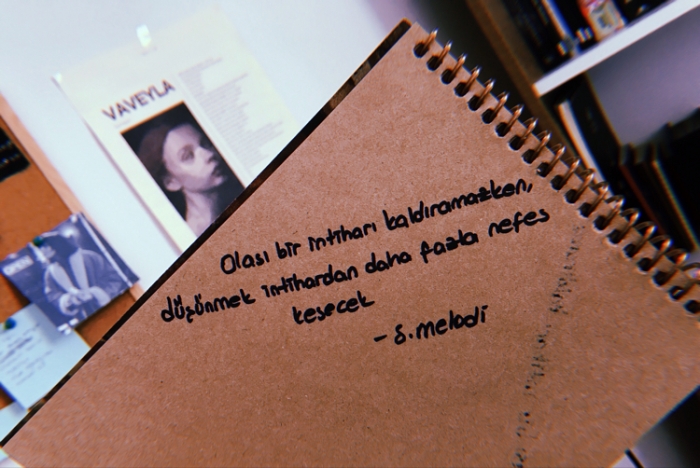 VAVEYLA
Olası bir intiharı kaldıramazken,
düşünmek intihardan daha fazla nefes
kesecek
- S.melodi